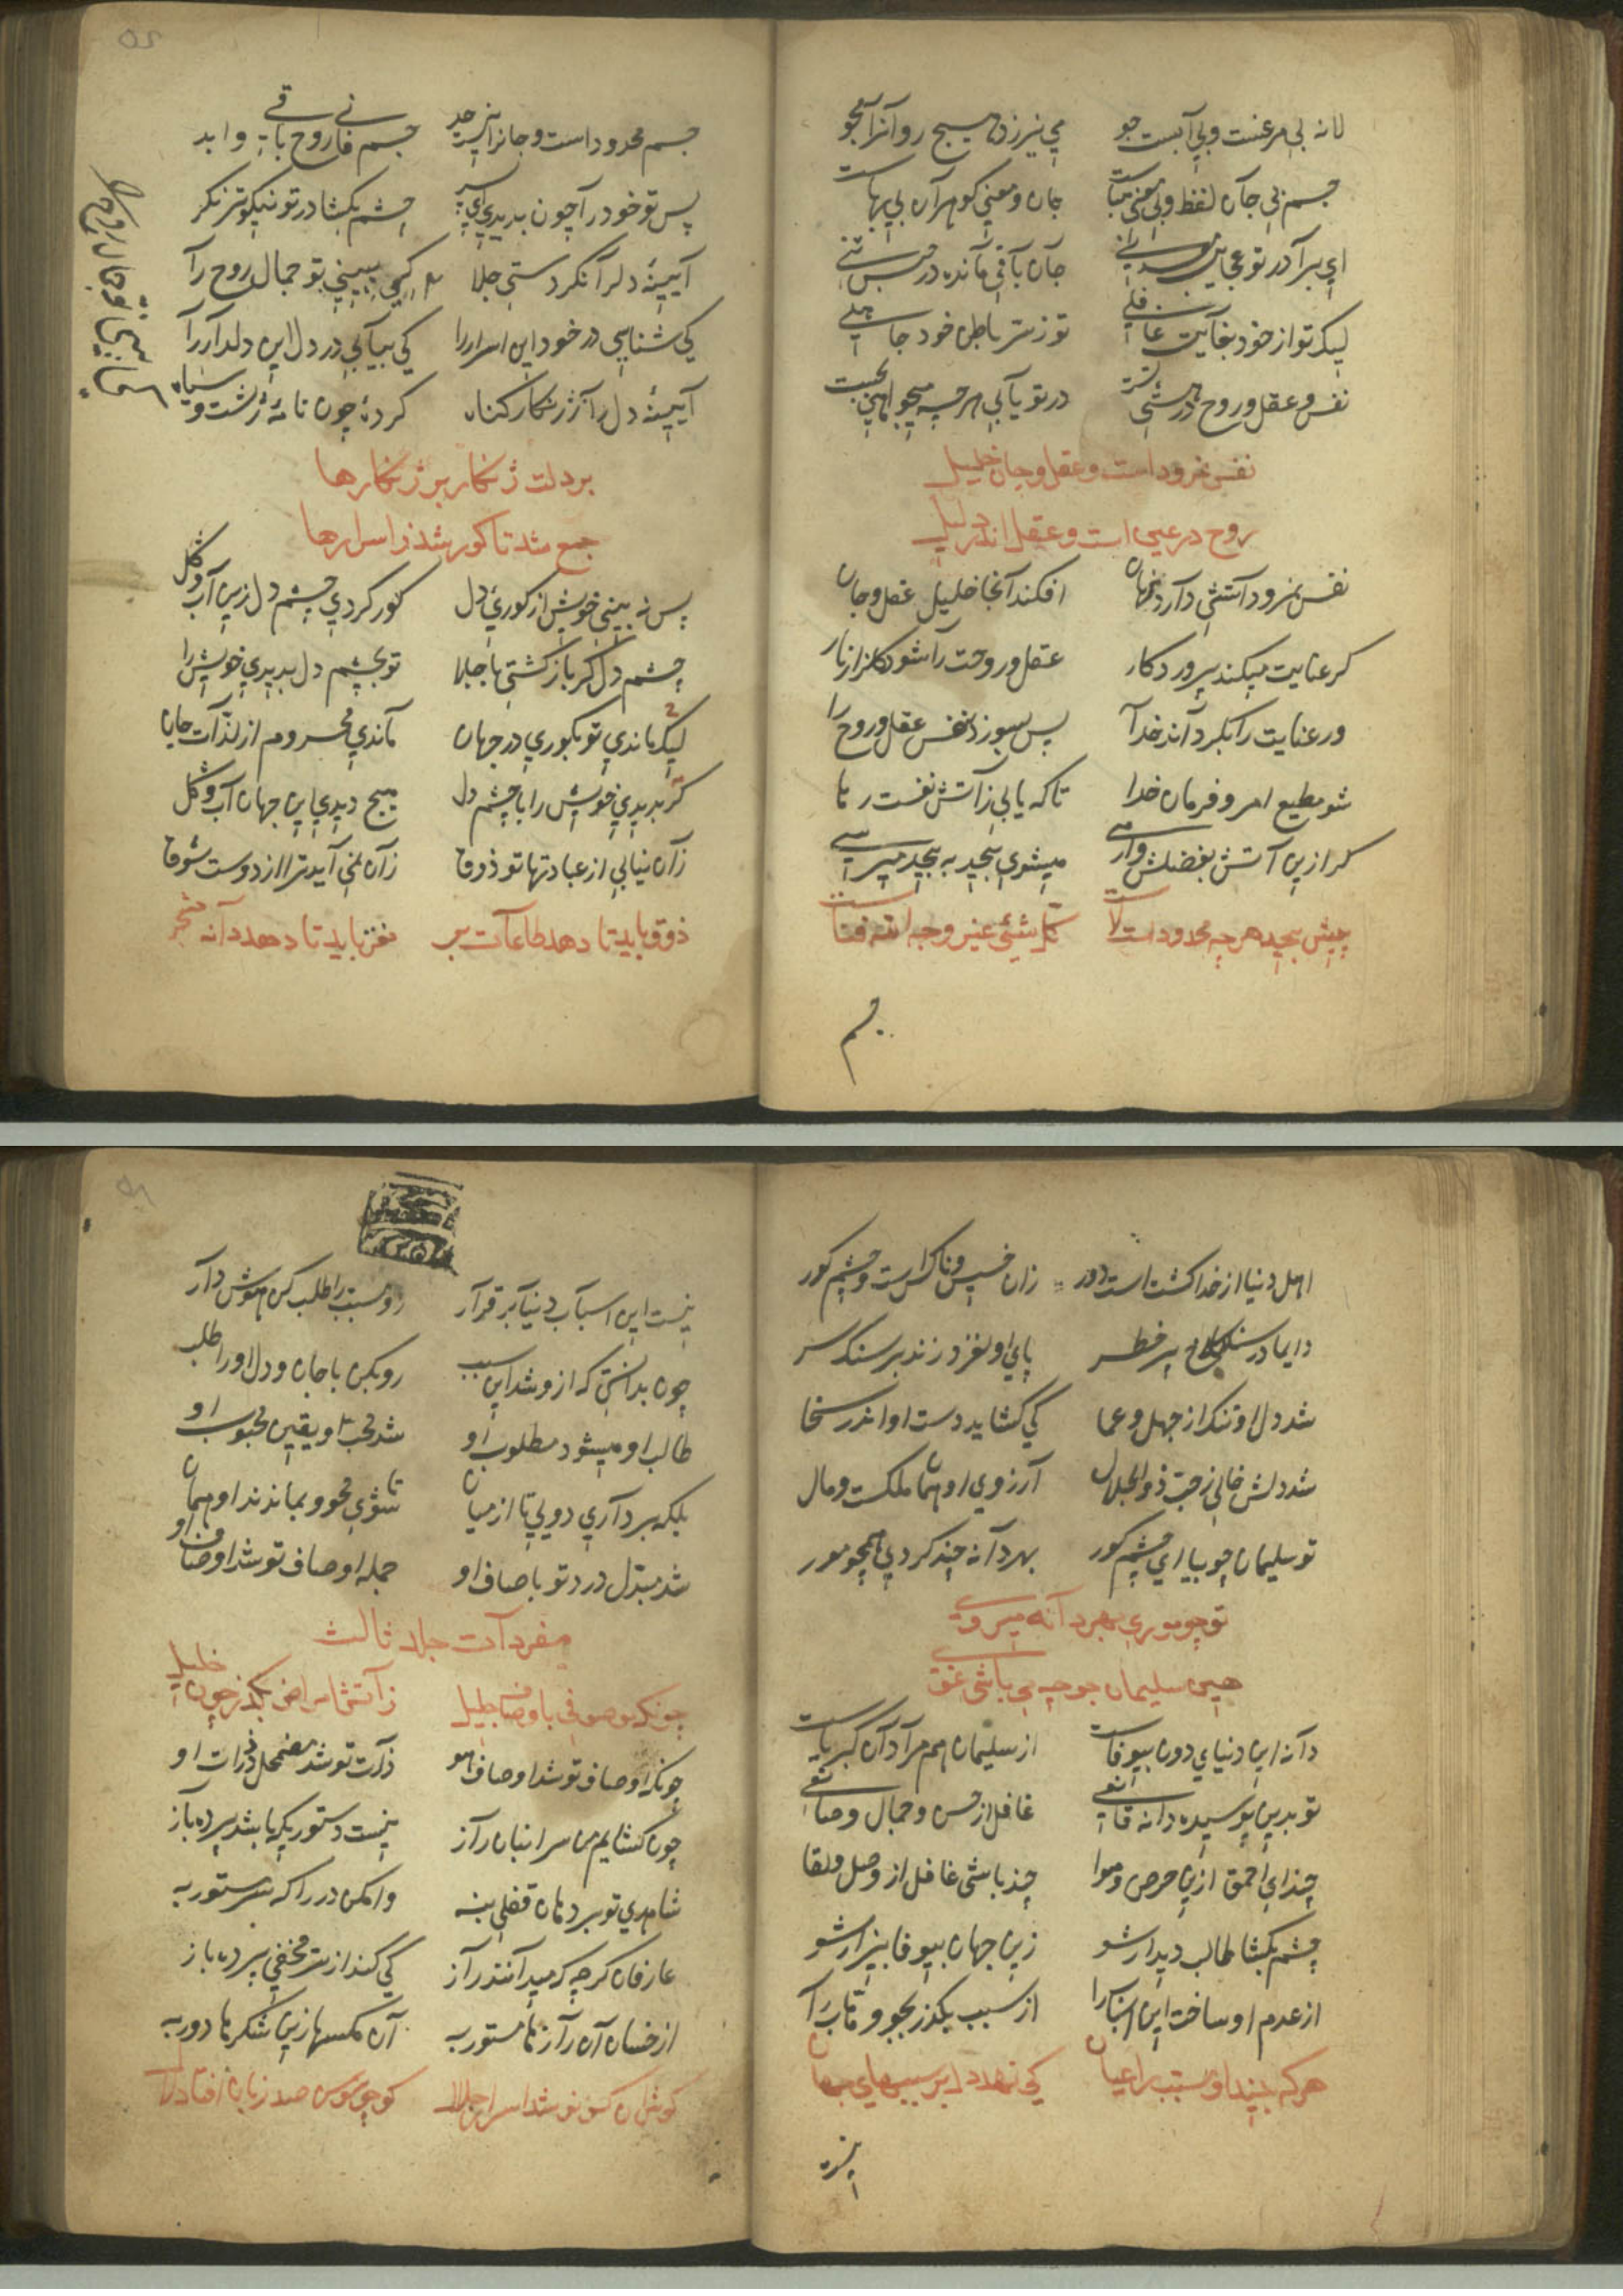 لانه بی مرغست و بی آبست جو می نیرزد هیچ رو آنرا مجو
جسم بی جان لفظ و بی معنی هباست جان و معنی گوهر آن بی بهاست
ای برادر در تو عجایب
جان باقی مانده در حبس تنی
لیک تو از خود بغایت غافلی تو ز سر باطن خود جاهلی
نفس و عقل و روح در تو یابی هرچه میجویی
نفس نمرود است و عقل و جان خلیل
روح در عین است و عقل اندر دلیل
نفس نمرود آتشی دارد نهان افکند آنجا خلیل عقل و جان
گر عنایت میکند پروردگار عقل و روحت را شود گلزار نار
ور عنایت را نگرداند خدا پس بسوزد نفس عقل و روح را
شو مطیع امر و فرمان خدا تا که یابی ز آتش نفست رها
گر ازین آتش بفضلش وارسی میشوی بیحد به بیحد میرسی
پیش بیحد هرچه محدود است لاست کل شیء غیر وجه الله فناست
جسم
جسم محدود است و جانرا نیست حد جسم فانی روح باقی تا ابد
پس تو خود را چون بدیدی ای پسر چشم بگشا در تو نیکوتر نگر
آیینهٔ دل را نکردستی جلا کی ببینی تو جمال روح را
کی شناسی در خود این اسرار را کی بیابی در دل این دلدار را
آیینهٔ دل را ز ژنگار گناه کردهٔ چون نامهٔ زشت و سیاه
بر دلت ژنگار بر ژنگارها
جمع شد تا کور شد ز اسرارها
پس نه بینی خویش از کوری دل کور کردی چشم دل زین آب و گل
چشم دل گر باز گشتی با جلا تو بچشم دل بدیدی خویش را
لیک ماندی تو بکوری در جهان ماندی محروم از لذات جان
گر بدیدی خویش را با چشم دل هیچ دیدی این جهان آب و گل
زان نیابی از عبادتها تو ذوق زان نمی آید ترا از دوست شوق
ذوق باید تا دهد طاعات بر مغز باید تا دهد دانه شجر
اهل دنیا از خدا گشت است دور زان خسیس و ناکس است و چشم کور
دایما در سنگلاخ پر خطر پای او لغزد زند بر سنگ سر
شد دل او تنگ از جهل و عما کی گشاید دست او اندر سخا
شد دلش خالی ز حب ذوالجلال آرزوی او همان ملکست و مال
تو سلیمان جو بیا ای چشم کور بهر دانه چند گردی همچو مور
تو چو موری بهر دانه میروی
هین سلیمان جو چه می باشی غوی
دانه این دنیای دون بیوفاست از سلیمان هم مراد آن کبریاست
تو بدین پوسیده دانه قانعی غافل از حسن و جمال و صانعی
چند ای احمق ازین حرص و هوا چند باشی غافل از وصل و لقا
چشم بگشا طالب دیدار شو زین جهان بیوفا بیزار شو
از عدم او ساخت این اسباب را از سبب بگذر بجو وهاب را
هر که بیند او مسبب را عیان کی نهد دل بر سببهای جهان
نیست
نیست این اسباب دنیا بر قرار رو مسبب را طلب کن هوش دار
چون بدانستی که ازو شد این سبب رو بکن با جان و دل او را طلب
طالب او میشود مطلوب او شد محب او یقین محبوب او
بلکه برداری دویی تا از میان تا شوی محو و بماند او همان
شد مبدل در تو باوصاف او جمله اوصاف تو شد اوصاف او
مفردات جلد ثالث
چونکه موصوفی باوصاف جلیل ز آتش امراض بگذر چون خلیل
چونکه اوصاف تو شد اوصاف هو ذات تو شد مضمحل ذرات او
چون گشایم من سر انبان راز نیست دستوریکه باشد پرده باز
شاهدی تو بر دهان قفلی بنه وا مکن در را که سر مستور به
عارفان گرچه که میدانند راز کی کند از سر مخفی پرده باز
از خسان آن رازها مستور به آن مگسها زین شکرها دور به
گوش آن کس نوشد اسرار جلال کو چو سوسن صد زبان افتاد لال